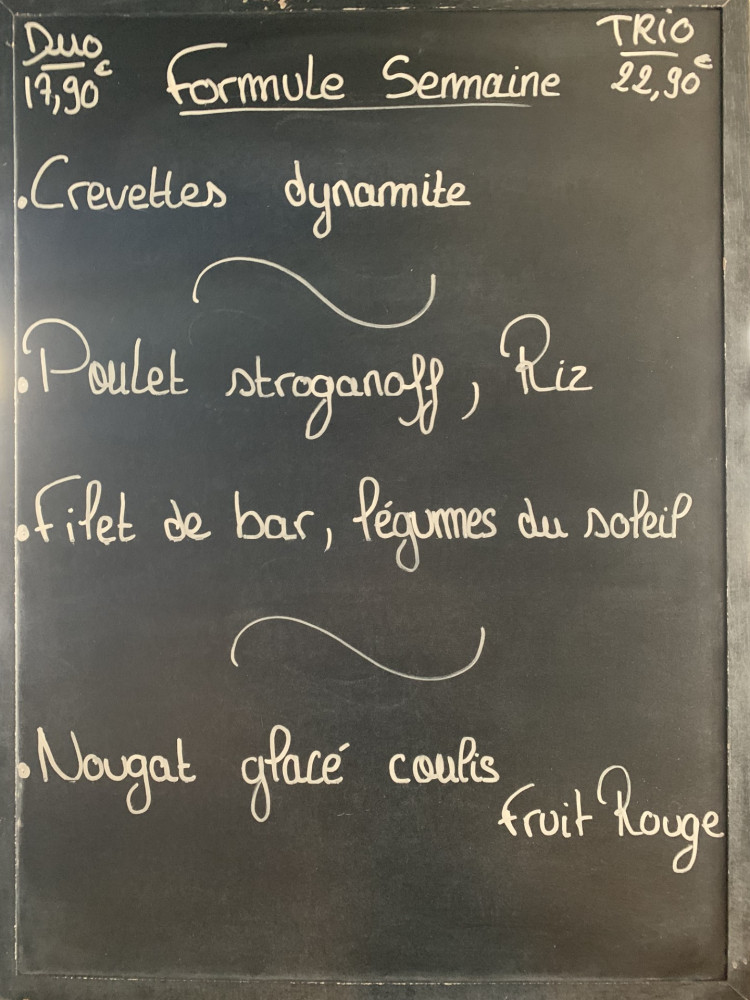 Duo
17,90€
Formule Semaine
TRiO
22,90€
. Crevettes dynamite
. Poulet stroganoff, Riz
. Filet de bar, légumes du soleil
. Nougat glacé coulis
Fruit Rouge